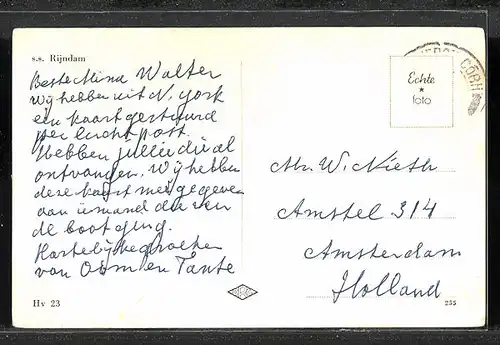 s.s. Rijndam
Beste Mina Walter
Wij hebben uit N. york
een kaart gestuurd
per luchtpost.
Hebben jullie die al
ontvangen. Wij hebben
deze kaart meegegeven
aan iemand die van
de boot ging.
Hartelijke groeten
van Oom en Tante
Hv 23
Echte
foto
CÓBH
Mr. W. Nieth
Amstel 314
Amsterdam
Holland
255